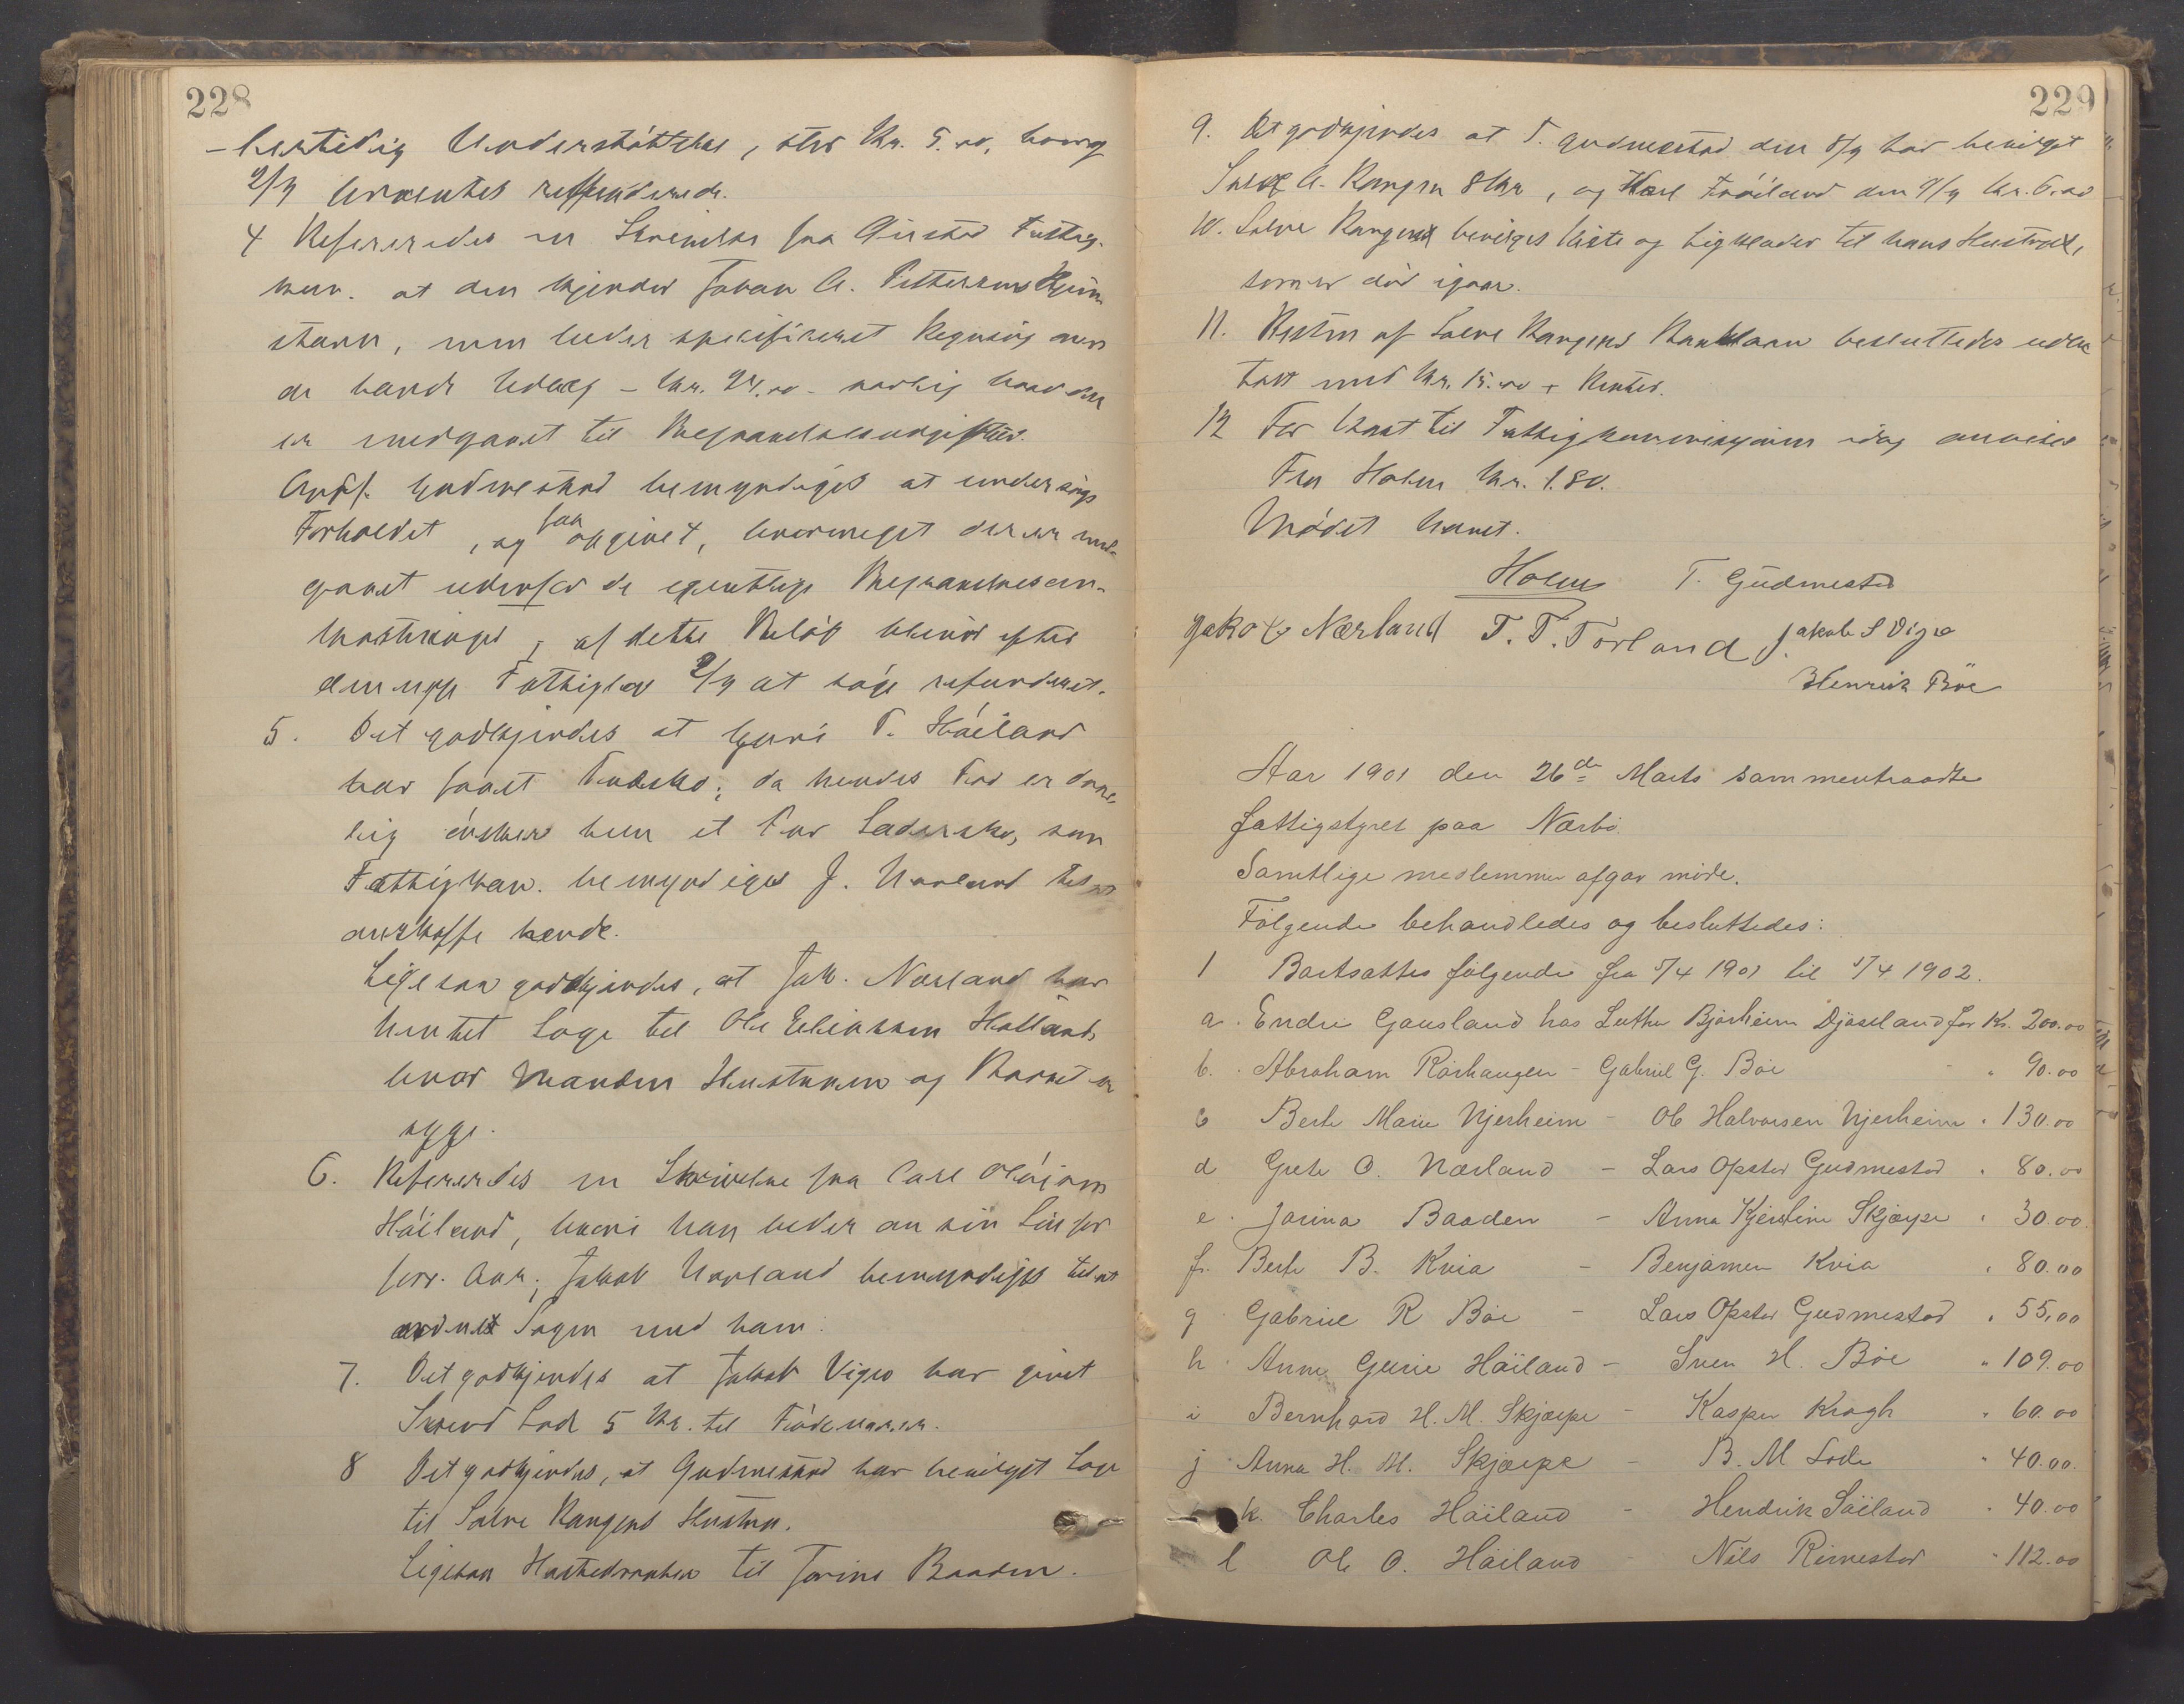 228
-bertidig Understøttelse, stor Kr. 5.00, hvoraf
2/4 forventes refunderede.
4 Refereredes en Skrivelse fra Gjested Fattig-
kom. at den kjender Johan A. Pettersens Hjem
stavn, men beder specificeret Regning over
de havde Udlæg - Kr. 24.00 - navnlig hvad der
er medgaaet til Begravelsesudgifter.
Ordf. Gudmestad bemyndiges at undersøge
Forholdet, og faa opgivet, hvormeget der er med-
gaaet udenfor de egentlige Begravelsesom-
kostninger, af dette Beløb bliver efter
Fattiglov 2/4 at søge refunderet.
5. Det godkjendes at Guri T. Håiland
har faaet Træsko; da hendes Fod er daar-
lig ønsker hun et Par Lædersko, som
Fattigkom. bemyndiges J. Nærland til at
anskaffe hende.
Ligesaa godkjendes, at Jak. Nærland har
hentet Læge til Ole Eliassen Hølland,
hvor Manden Hustruen og Barnet er
syge.
6. Refereredes en Skrivelse fra Carl Olai
Håiland, hvori han beder om sin Løn for
forr. Aar; Jakob Nærland bemyndiges til at
ordnet Sagen med ham.
7. Det godkjendes at Jakob Vigre har givet
Svend Lode 5 Kr. til Fødevarer.
8 Det godkjendes, at Gudmestad har bevilget Læge
til Salve Rangens Hustru.
Ligesaa Hostedraaber til Jorine Baaden.
229
9. Det godkjendes at T. Gudmestad den 8/3 har bevilget
Salve A. Rangen 8 Kr, og Karl Frøiland den 9/3 Kr. 6.00
10. Salve Rangens bevilges Kiste og Ligklæder til hans Hustru,
som er død igaar.
11. Resten af Salve Rangens Banklaan besluttedes udbe
talt med Kr. 15.00 + Renter.
12 For Skyds til Fattigkommissionen idag anvises
Fru Holm Kr. 1.80.
Mødet hævet.
Holm T. Gudmestad
Jakob Nærland T. T. Torland Jakob S Vigre
Henrik Böe
Aar 1901 den 26de Marts sammentraadte
fattigstyret paa Nærbö
Samtlige medlemmer afgav möde.
Fölgende behandledes og besluttedes:
1 Bortsattes fölgende fra 1/4 1901 til 1/4 1902.
a. Endre Gausland hos Luther Bjorheim Djøseland for Kr. 200.00
b. Abraham Rörhaugen - Gabriel G. Böe - " 90.00
c Berte Marie Njerheim - Ole Halvorsen Njerheim " 130.00
d Grete O. Nærland - Lars Opsted Gudmestad " 80.00
e. Jorina Baaden - Anna Kjerstine Skjærpe " 30.00
f. Berte B. Kvia - Benjamen Kvia " 80.00
g Gabriel R Böe - Lars Opsted Gudmestad " 55,00
h Anne Gurie Häiland - Sven H. Böe " 109.00
i Bernhard H. M. Skjærpe - Kasper Kragh " 60.00
j Anna H. M. Skjærpe - B. M Lode " 40.00
k. Charles Häiland - Hendrik Säiland " 40.00
l Ole O. Häiland - Nils Rimestad " 112.00